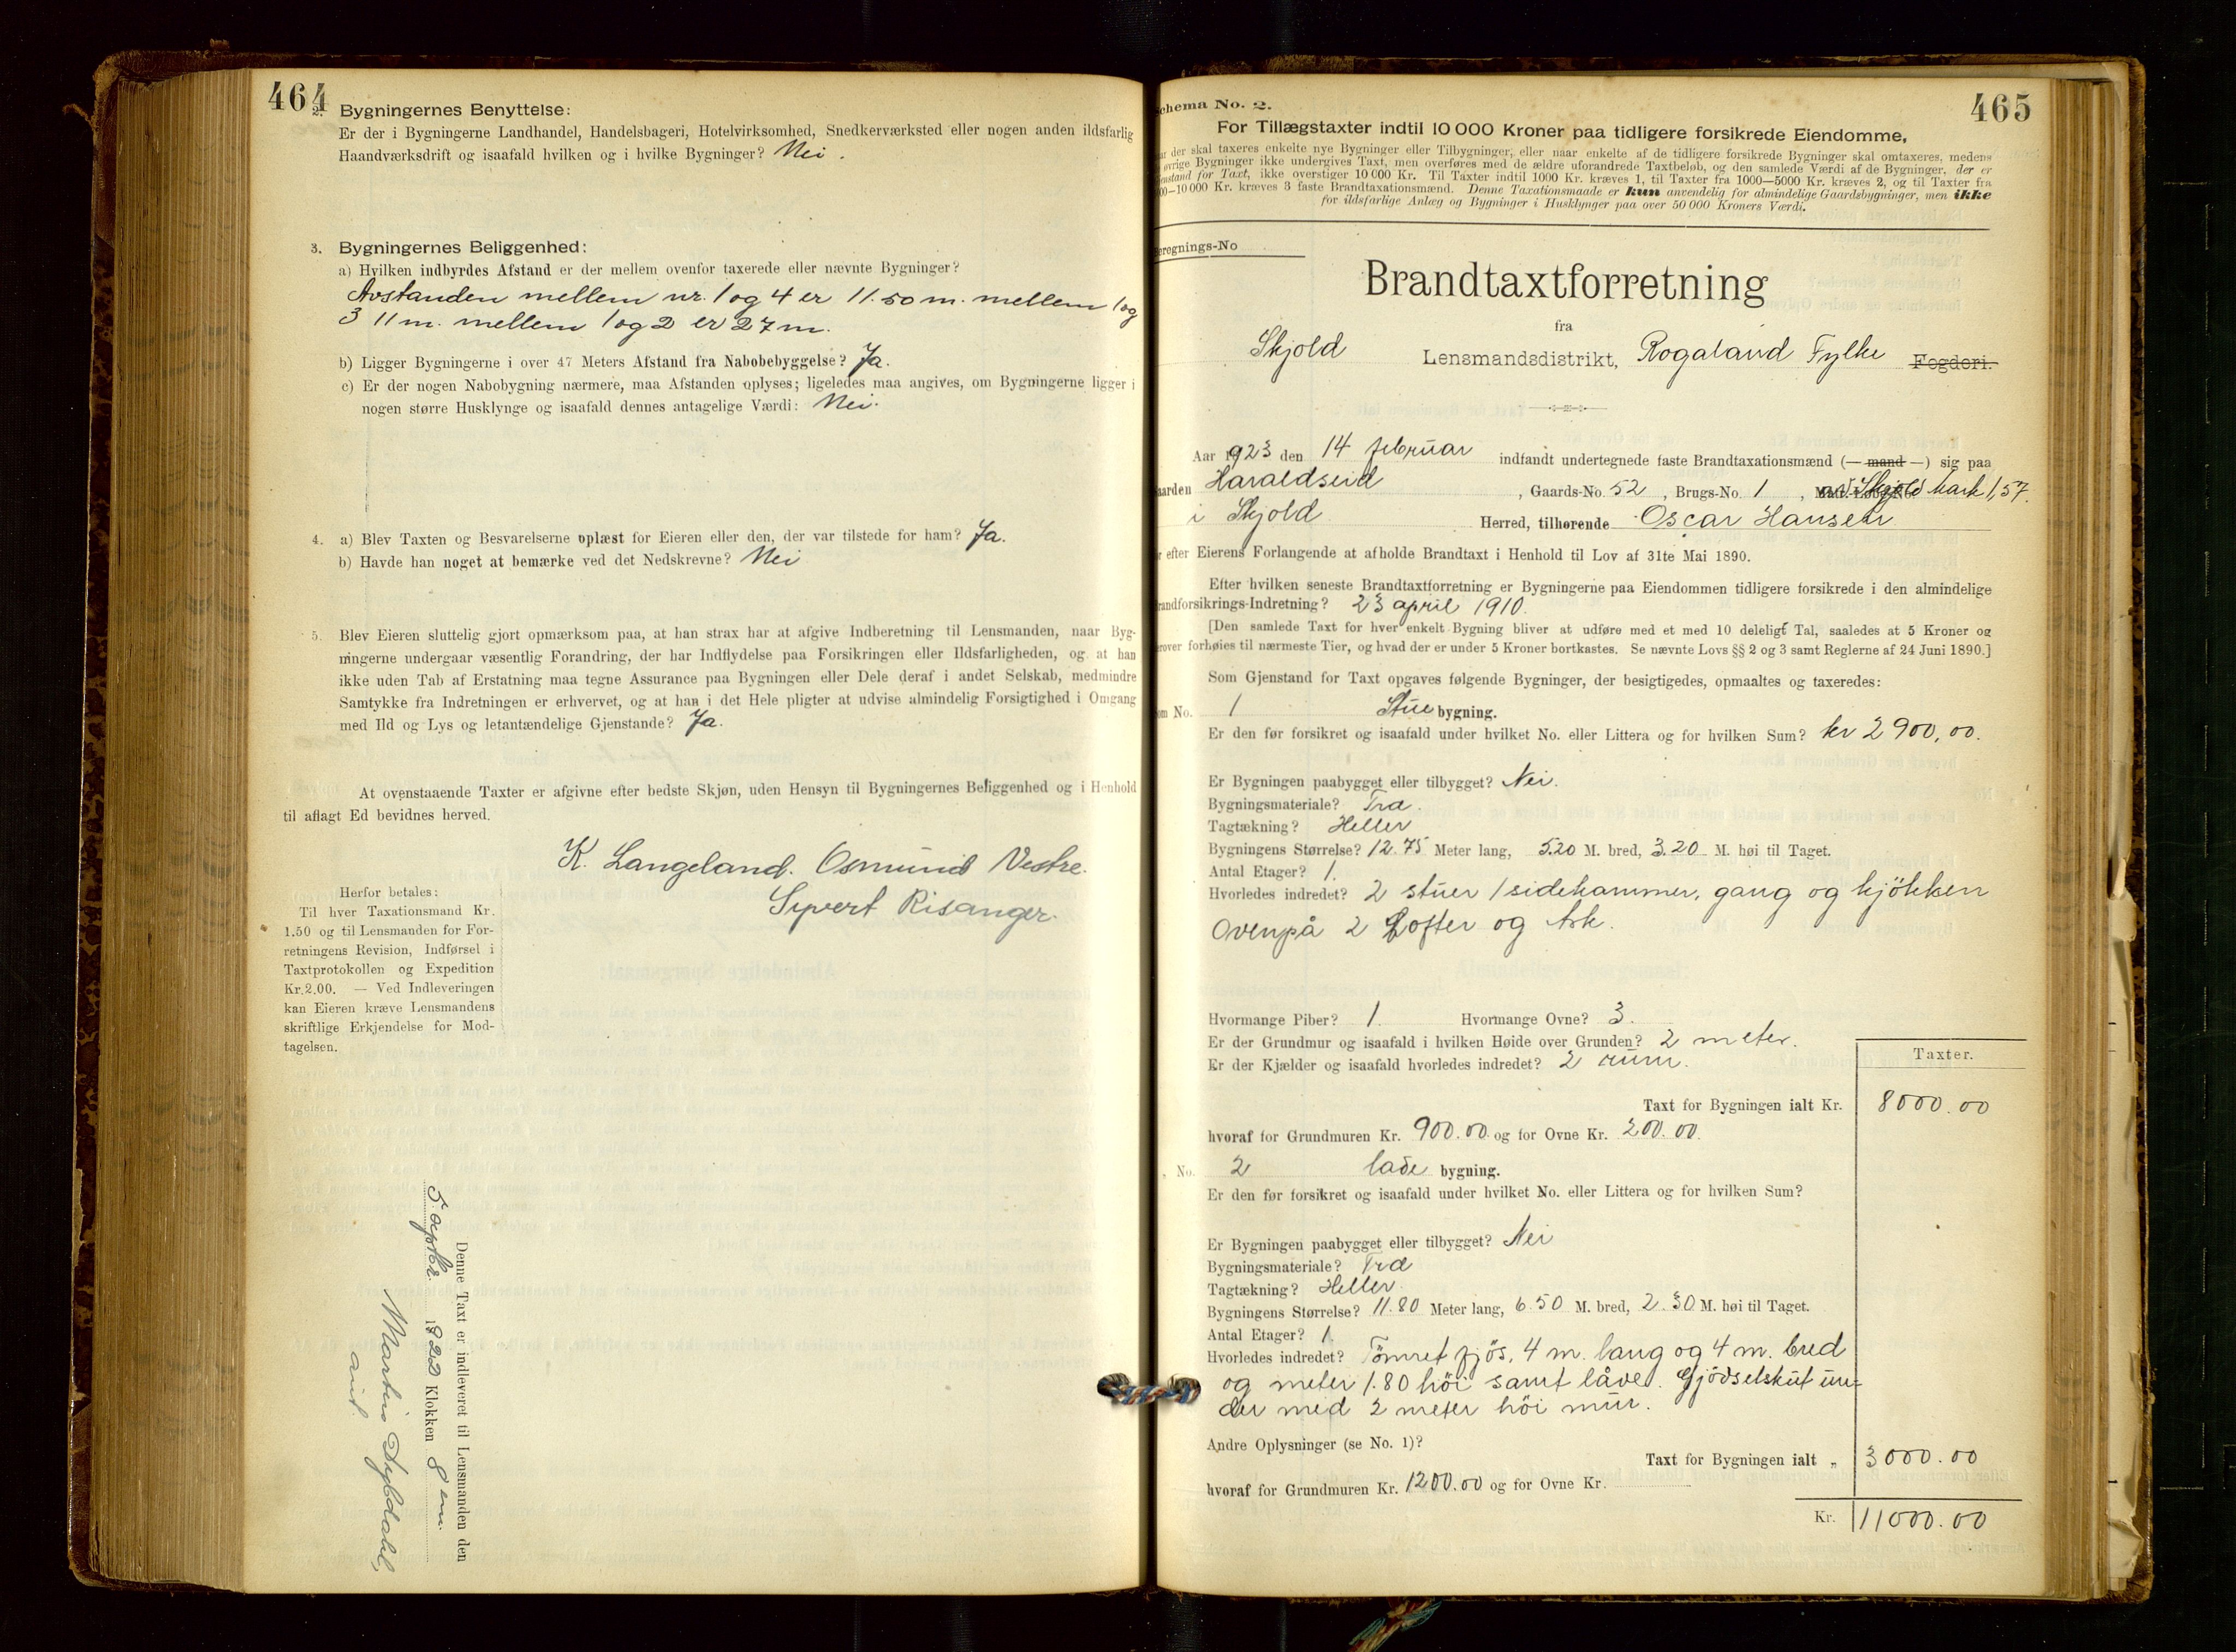 464
2. Bygningernes Benyttelse:
Er der i Bygningerne Landhandel, Handelsbageri, Hotelvirksomhed, Snedkerværksted eller nogen anden ildsfarlig
Haandværksdrift og isaafald hvilken og i hvilke Bygninger? Nei.
3. Bygningernes Beliggenhed:
a) Hvilken indbyrdes Afstand er der mellem ovenfor taxerede eller nævnte Bygninger?
Avstanden mellem nr. 1 og 4 er 11.50 m. mellem 1 og
3 11 m. mellem 1 og 2 er 27 m.
b) Ligger Bygningerne i over 47 Meters Afstand fra Nabobebyggelse? Ja.
c) Er der nogen Nabobygning nærmere, maa Afstanden oplyses; ligeledes maa angives, om Bygningerne ligger i
nogen større Husklynge og isaafald dennes antagelige Værdi: Nei.
4. a) Blev Taxten og Besvarelserne oplæst for Eieren eller den, der var tilstede for ham? Ja.
b) Havde han noget at bemærke ved det Nedskrevne? Nei
5. Blev Eieren sluttelig gjort opmærksom paa, at han strax har at afgive Indberetning til Lensmanden, naar Byg-
ningerne undergaar væsentlig Forandring, der har Indflydelse paa Forsikringen eller Ildsfarligheden, og at han
ikke uden Tab af Erstatning maa tegne Assurance paa Bygningen eller Dele deraf i andet Selskab, medmindre
Samtykke fra Indretningen er erhvervet, og at han i det Hele pligter at udvise almindelig Forsigtighed i Omgang
med Ild og Lys og letantændelige Gjenstande? Ja.
At ovenstaaende Taxter er afgivne efter bedste Skjøn, uden Hensyn til Bygningernes Beliggenhed og i Henhold
til aflagt Ed bevidnes herved.
K. Langeland. Osmund Vestre.
Syvert Risanger.
Herfor betales:
Til hver Taxationsmand Kr.
1.50 og til Lensmanden for For-
retningens Revision, Indførsel i
Taxtprotokollen og Expedition
Kr. 2.00. — Ved Indleveringen
kan Eieren kræve Lensmandens
skriftlige Erkjendelse for Mod-
tagelsen.
Denne Taxt er indleveret til Lensmanden den
5. septbr. 1922 Klokken 8 em.
Martin
465
Schema No. 2.
For Tillægstaxter indtil 10 000 Kroner paa tidligere forsikrede Eiendomme,
der skal taxeres enkelte nye Bygninger eller Tilbygninger, eller naar enkelte af de tidligere forsikrede Bygninger skal omtaxeres, medens
øvrige Bygninger ikke undergives Taxt, men overføres med de ældre uforandrede Taxtbeløb, og den samlede Værdi af de Bygninger, der er
Gjenstand for Taxt, ikke overstiger 10 000 Kr. Til Taxter indtil 1000 Kr. kræves 1, til Taxter fra 1000—5000 Kr. kræves 2, og til Taxter fra
5000—10 000 Kr. kræves 3 faste Brandtaxationsmænd. Denne Taxationsmaade er kun anvendelig for almindelige Gaardsbygninger, men ikke
for ildsfarlige Anlæg og Bygninger i Husklynger paa over 50 000 Kroners Værdi.
Beregnings-No
Brandtaxtforretning
fra
Skjold Lensmandsdistrikt, Rogaland Fylke Fogderi.
Aar 1923 den 14 februar indfandt undertegnede faste Brandtaxationsmænd (— mand —) sig paa
Gaarden Haraldseid, Gaards-No. 52, Brugs-No. 1, av Skjold Mark 1,57.
i Skjold Herred, tilhørende Oscar Hansen
for efter Eierens Forlangende at afholde Brandtaxt i Henhold til Lov af 31te Mai 1890.
Efter hvilken seneste Brandtaxtforretning er Bygningerne paa Eiendommen tidligere forsikrede i den almindelige
Brandforsikrings-Indretning? 23 april 1910.
[Den samlede Taxt for hver enkelt Bygning bliver at udføre med et med 10 deleligt Tal, saaledes at 5 Kroner og
derover forhøies til nærmeste Tier, og hvad der er under 5 Kroner bortkastes. Se nævnte Lovs §§ 2 og 3 samt Reglerne af 24 Juni 1890.]
Som Gjenstand for Taxt opgaves følgende Bygninger, der besigtigedes, opmaaltes og taxeredes:
Som No. 1 Stue bygning.
Er den før forsikret og isaafald under hvilket No. eller Littera og for hvilken Sum? kr 2900,00.
Er Bygningen paabygget eller tilbygget? Nei.
Bygningsmateriale? Træ.
Tagtækning? Heller
Bygningens Størrelse? 12.75 Meter lang, 5.20 M. bred, 3.20 M. høi til Taget.
Antal Etager? 1.
Hvorledes indredet? 2 stuer 1 sidekammer, gang og kjökken
Ovenpå 2 Lofter og Ark.
Hvormange Piber? 1. Hvormange Ovne? 3.
Er der Grundmur og isaafald i hvilken Høide over Grunden? 2 meter.
Er der Kjælder og isaafald hvorledes indredet? 2 rum.
Taxter.
Taxt for Bygningen ialt Kr. 8000.00
hvoraf for Grundmuren Kr. 900.00 og for Ovne Kr. 200.00.
No. 2 lade bygning.
Er den før forsikret og isaafald under hvilket No. eller Littera og for hvilken Sum?
Er Bygningen paabygget eller tilbygget? Nei
Bygningsmateriale? Træ
Tagtækning? Heller.
Bygningens Størrelse? 11.80 Meter lang, 6.50 M. bred, 2.30 M. høi til Taget.
Antal Etager? 1.
Hvorledes indredet? Tömret fjös, 4 m. lang og 4 m. bred
og meter 1.80 höi samt låve. Gjödselskut un-
der med 2 meter höi mur.
Andre Oplysninger (se No. 1)?
Taxt for Bygningen ialt „ 3000.00
hvoraf for Grundmuren Kr. 1200.00 og for Ovne Kr.
Kr. 11000.00